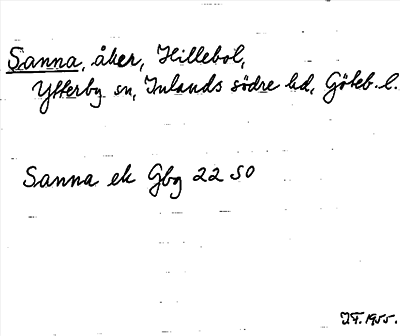 Sanna, åker, Hillebol,
Ytterby sn, Inlands södre hd, Göteb. l.
Sanna ek Gbg 22 SO
I.F. 1955.